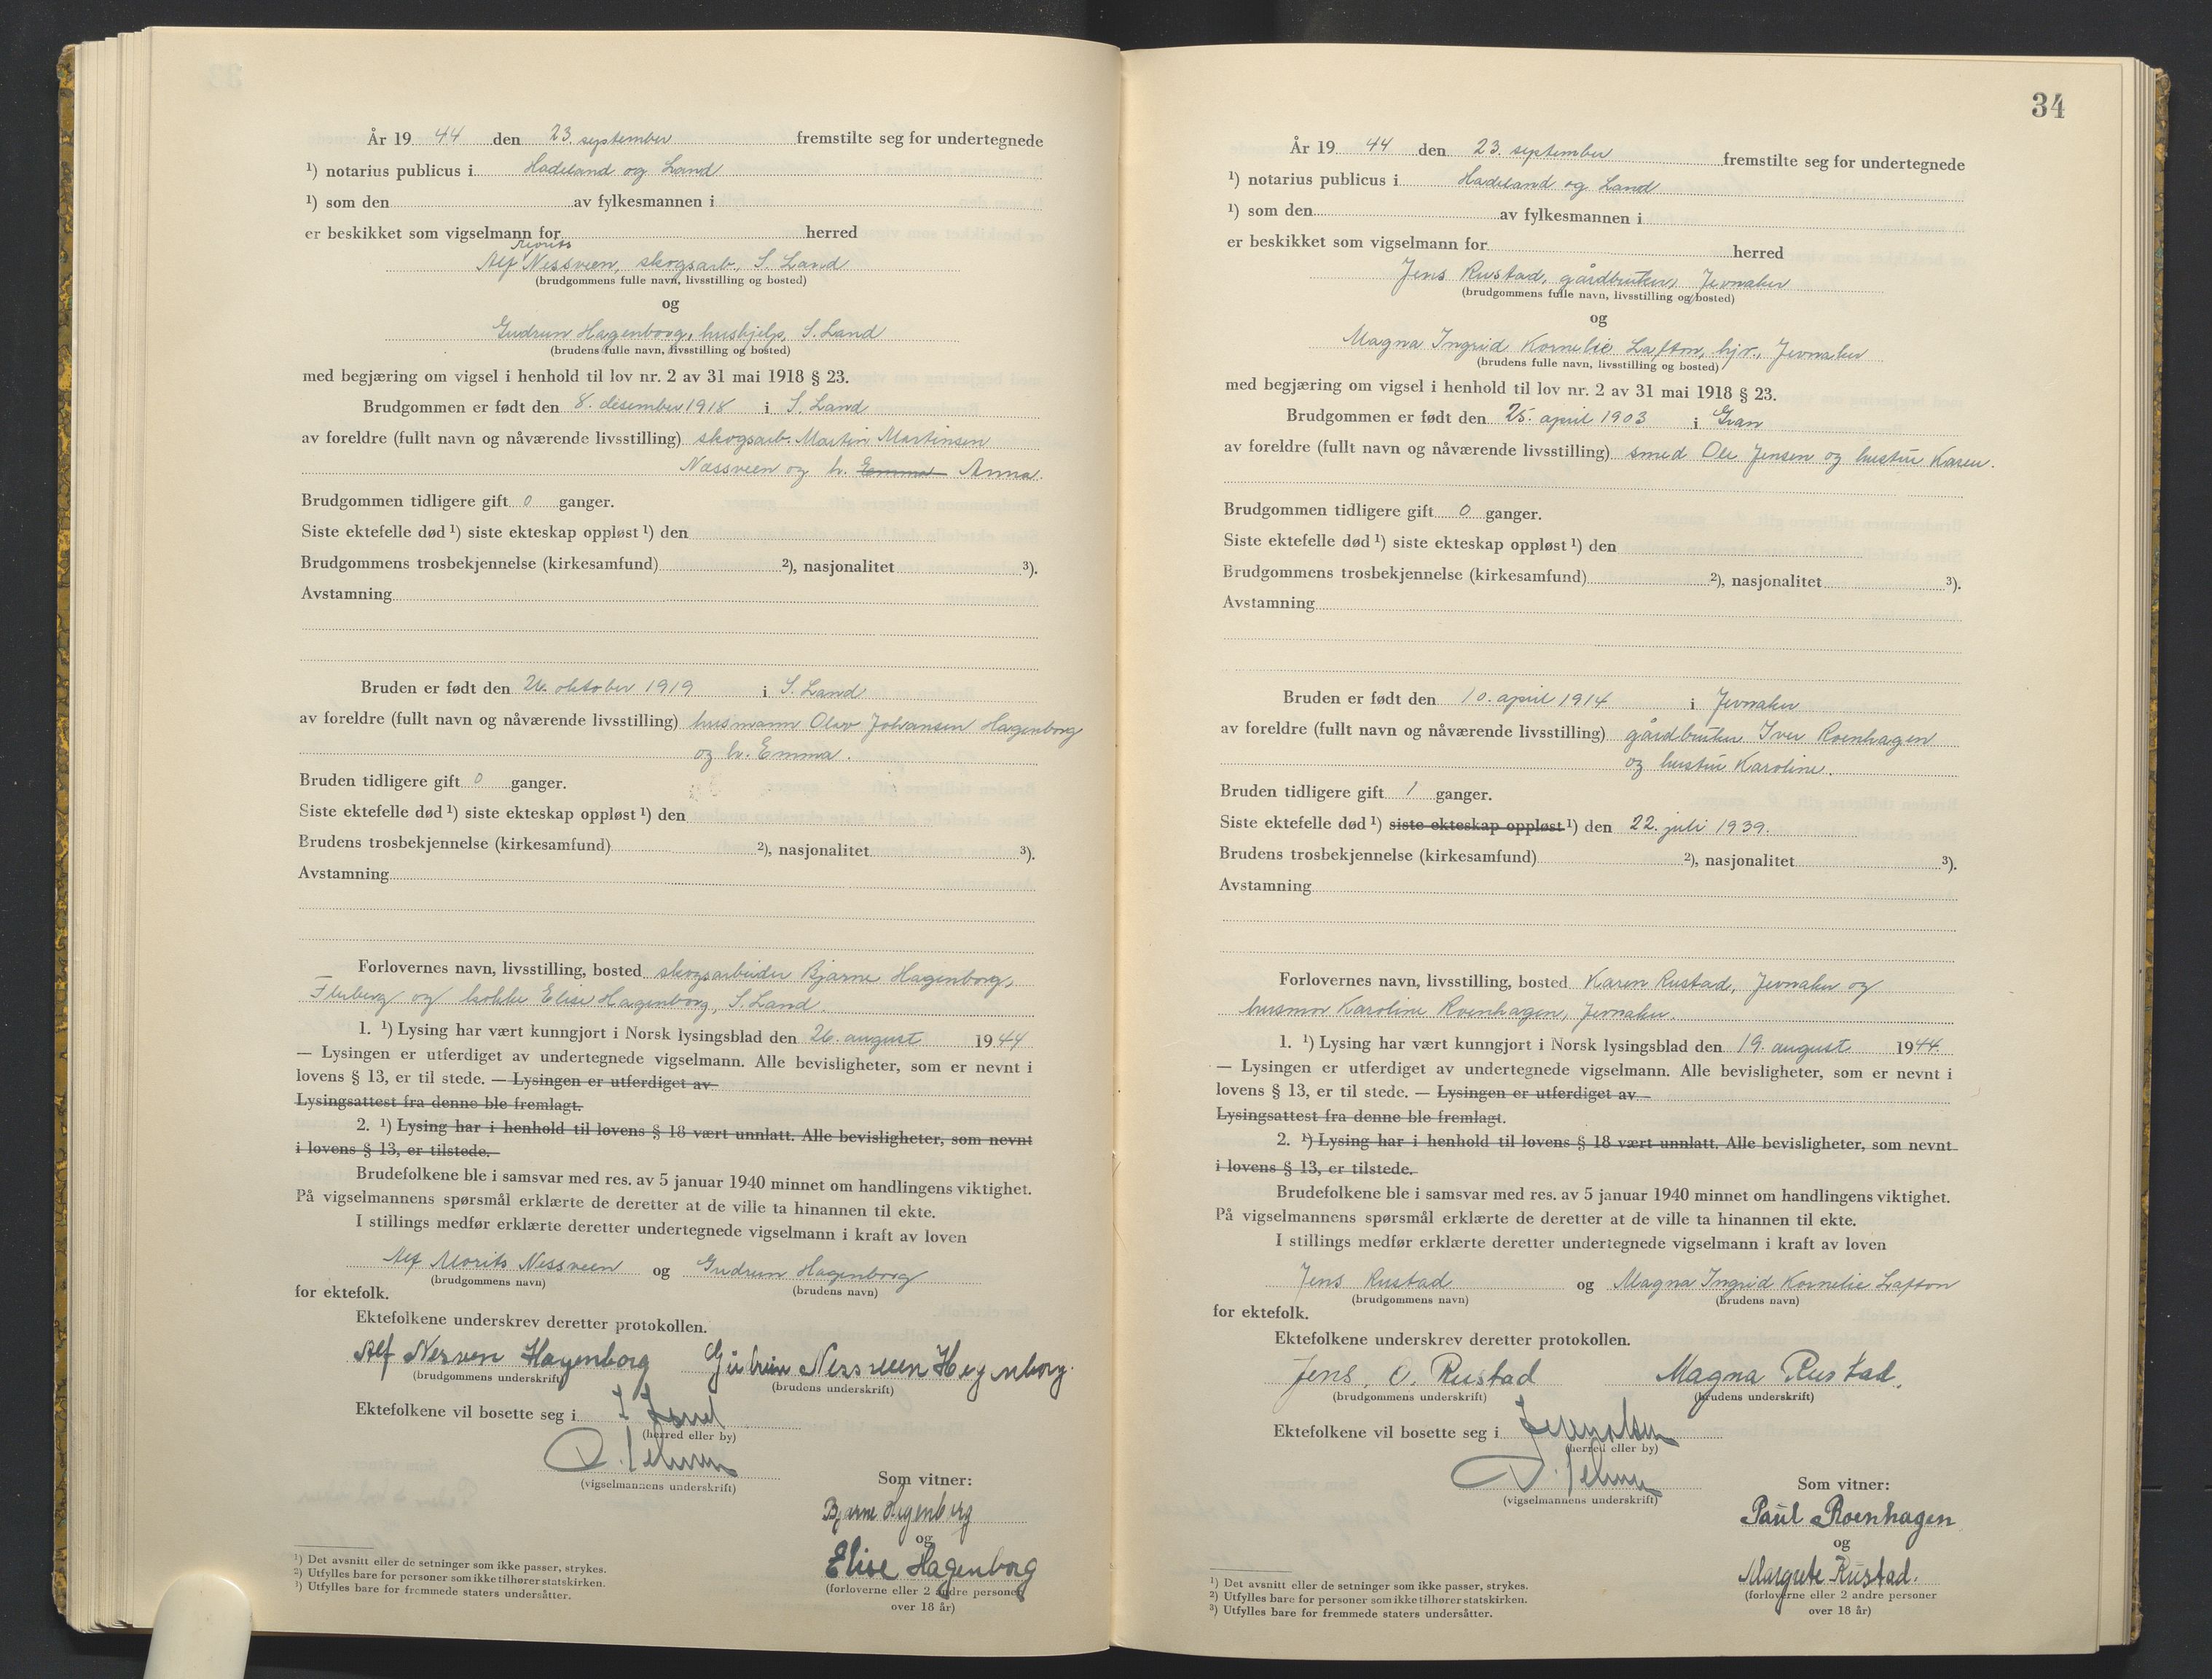 År 19 44 den 23. september fremstilte seg for undertegnede
¹) notarius publicus i Hadeland og Land
¹) som den av fylkesmannen i
er beskikket som vigselmann for herred
Morits
Alf Nessveen, skogsarb., S. Land
(brudgommens fulle navn, livsstilling og bosted)
og
Gudrun Hagenborg, hushjelp, S. Land
(brudens fulle navn, livsstilling og bosted)
med begjæring om vigsel i henhold til lov nr. 2 av 31 mai 1918 § 23.
Brudgommen er født den 8. desember 1918 i S. Land
av foreldre (fullt navn og nåværende livsstilling) skogsarb. Martin Martinsen
Næssveen og h. Emma Anna.
Brudgommen tidligere gift 0 ganger.
Siste ektefelle død ¹) siste ekteskap oppløst ¹) den
Brudgommens trosbekjennelse (kirkesamfund) ²), nasjonalitet ³).
Avstamning
Bruden er født den 26. oktober 1919 i S. Land
av foreldre (fullt navn og nåværende livsstilling) husmann Olav Johansen Hagenborg
og h. Emma.
Bruden tidligere gift 0 ganger.
Siste ektefelle død ¹) siste ekteskap oppløst ¹) den
Brudens trosbekjennelse (kirkesamfund) ²), nasjonalitet ³).
Avstamning
Forlovernes navn, livsstilling, bosted skogsarbeider Bjarne Hagenborg,
Fluberg og kokke Elise Hagenborg, S. Land.
1. ¹) Lysing har vært kunngjort i Norsk lysingsblad den 26. august 1944
— Lysingen er utferdiget av undertegnede vigselmann. Alle bevisligheter, som er nevnt i
lovens § 13, er til stede. — Lysingen er utferdiget av
Lysingsattest fra denne ble fremlagt.
2. ¹) Lysing har i henhold til lovens § 18 vært unnlatt. Alle bevisligheter, som nevnt
i lovens § 13, er tilstede.
Brudefolkene ble i samsvar med res. av 5 januar 1940 minnet om handlingens viktighet.
På vigselmannens spørsmål erklærte de deretter at de ville ta hinannen til ekte.
I stillings medfør erklærte deretter undertegnede vigselmann i kraft av loven
Alf Morits Nessveen og Gudrun Hagenborg
(brudgommens navn) (brudens navn)
for ektefolk.
Ektefolkene underskrev deretter protokollen.
Alf Nesven Hagenborg Gudrun Nessveen Hagenborg.
(brudgommens underskrift) (brudens underskrift)
Ektefolkene vil bosette seg i S Land
(herred eller by)
(vigselmannens underskrift)
Som vitner:
Bjarne Hagenborg
og
Elise Hagenborg
(forloverne eller 2 andre personer
over 18 år)
¹) Det avsnitt eller de setninger som ikke passer, strykes.
²) Utfylles bare for personer som ikke tilhører statskirken.
³) Utfylles bare for fremmede staters undersåtter.
34
År 19 44 den 23. september fremstilte seg for undertegnede
¹) notarius publicus i Hadeland og Land
¹) som den av fylkesmannen i
er beskikket som vigselmann for herred
Jens Rustad, gårdbruker, Jevnaker
(brudgommens fulle navn, livsstilling og bosted)
og
Magna Ingrid Kornelie Lafton, hjv., Jevnaker
(brudens fulle navn, livsstilling og bosted)
med begjæring om vigsel i henhold til lov nr. 2 av 31 mai 1918 § 23.
Brudgommen er født den 25. april 1903 i Gran
av foreldre (fullt navn og nåværende livsstilling) smed Ole Jensen og hustru Karen.
Brudgommen tidligere gift 0 ganger.
Siste ektefelle død ¹) siste ekteskap oppløst ¹) den
Brudgommens trosbekjennelse (kirkesamfund) ²), nasjonalitet ³).
Avstamning
Bruden er født den 10. april 1914 i Jevnaker
av foreldre (fullt navn og nåværende livsstilling) gårdbruker Iver Roenhagen
og hustru Karoline.
Bruden tidligere gift 1 ganger.
Siste ektefelle død ¹) siste ekteskap oppløst ¹) den 22. juli 1939.
Brudens trosbekjennelse (kirkesamfund) ²), nasjonalitet ³).
Avstamning
Forlovernes navn, livsstilling, bosted Karen Rustad, Jevnaker og
husmor Karoline Roenhagen, Jevnaker.
1. ¹) Lysing har vært kunngjort i Norsk lysingsblad den 19. august 1944.
— Lysingen er utferdiget av undertegnede vigselmann. Alle bevisligheter, som er nevnt i
lovens § 13, er til stede. — Lysingen er utferdiget av
Lysingsattest fra denne ble fremlagt.
2. ¹) Lysing har i henhold til lovens § 18 vært unnlatt. Alle bevisligheter, som nevnt
i lovens § 13, er tilstede.
Brudefolkene ble i samsvar med res. av 5 januar 1940 minnet om handlingens viktighet.
På vigselmannens spørsmål erklærte de deretter at de ville ta hinannen til ekte.
I stillings medfør erklærte deretter undertegnede vigselmann i kraft av loven
Jens Rustad og Magna Ingrid Kornelie Lafton
(brudgommens navn) (brudens navn)
for ektefolk.
Ektefolkene underskrev deretter protokollen.
Jens. O. Rustad Magna Rustad.
(brudgommens underskrift) (brudens underskrift)
Ektefolkene vil bosette seg i Jevnaker
(herred eller by)
(vigselmannens underskrift)
Som vitner:
Paul Roenhagen
og
Margrete Rustad.
(forloverne eller 2 andre personer
over 18 år)
¹) Det avsnitt eller de setninger som ikke passer, strykes.
²) Utfylles bare for personer som ikke tilhører statskirken.
³) Utfylles bare for fremmede staters undersåtter.